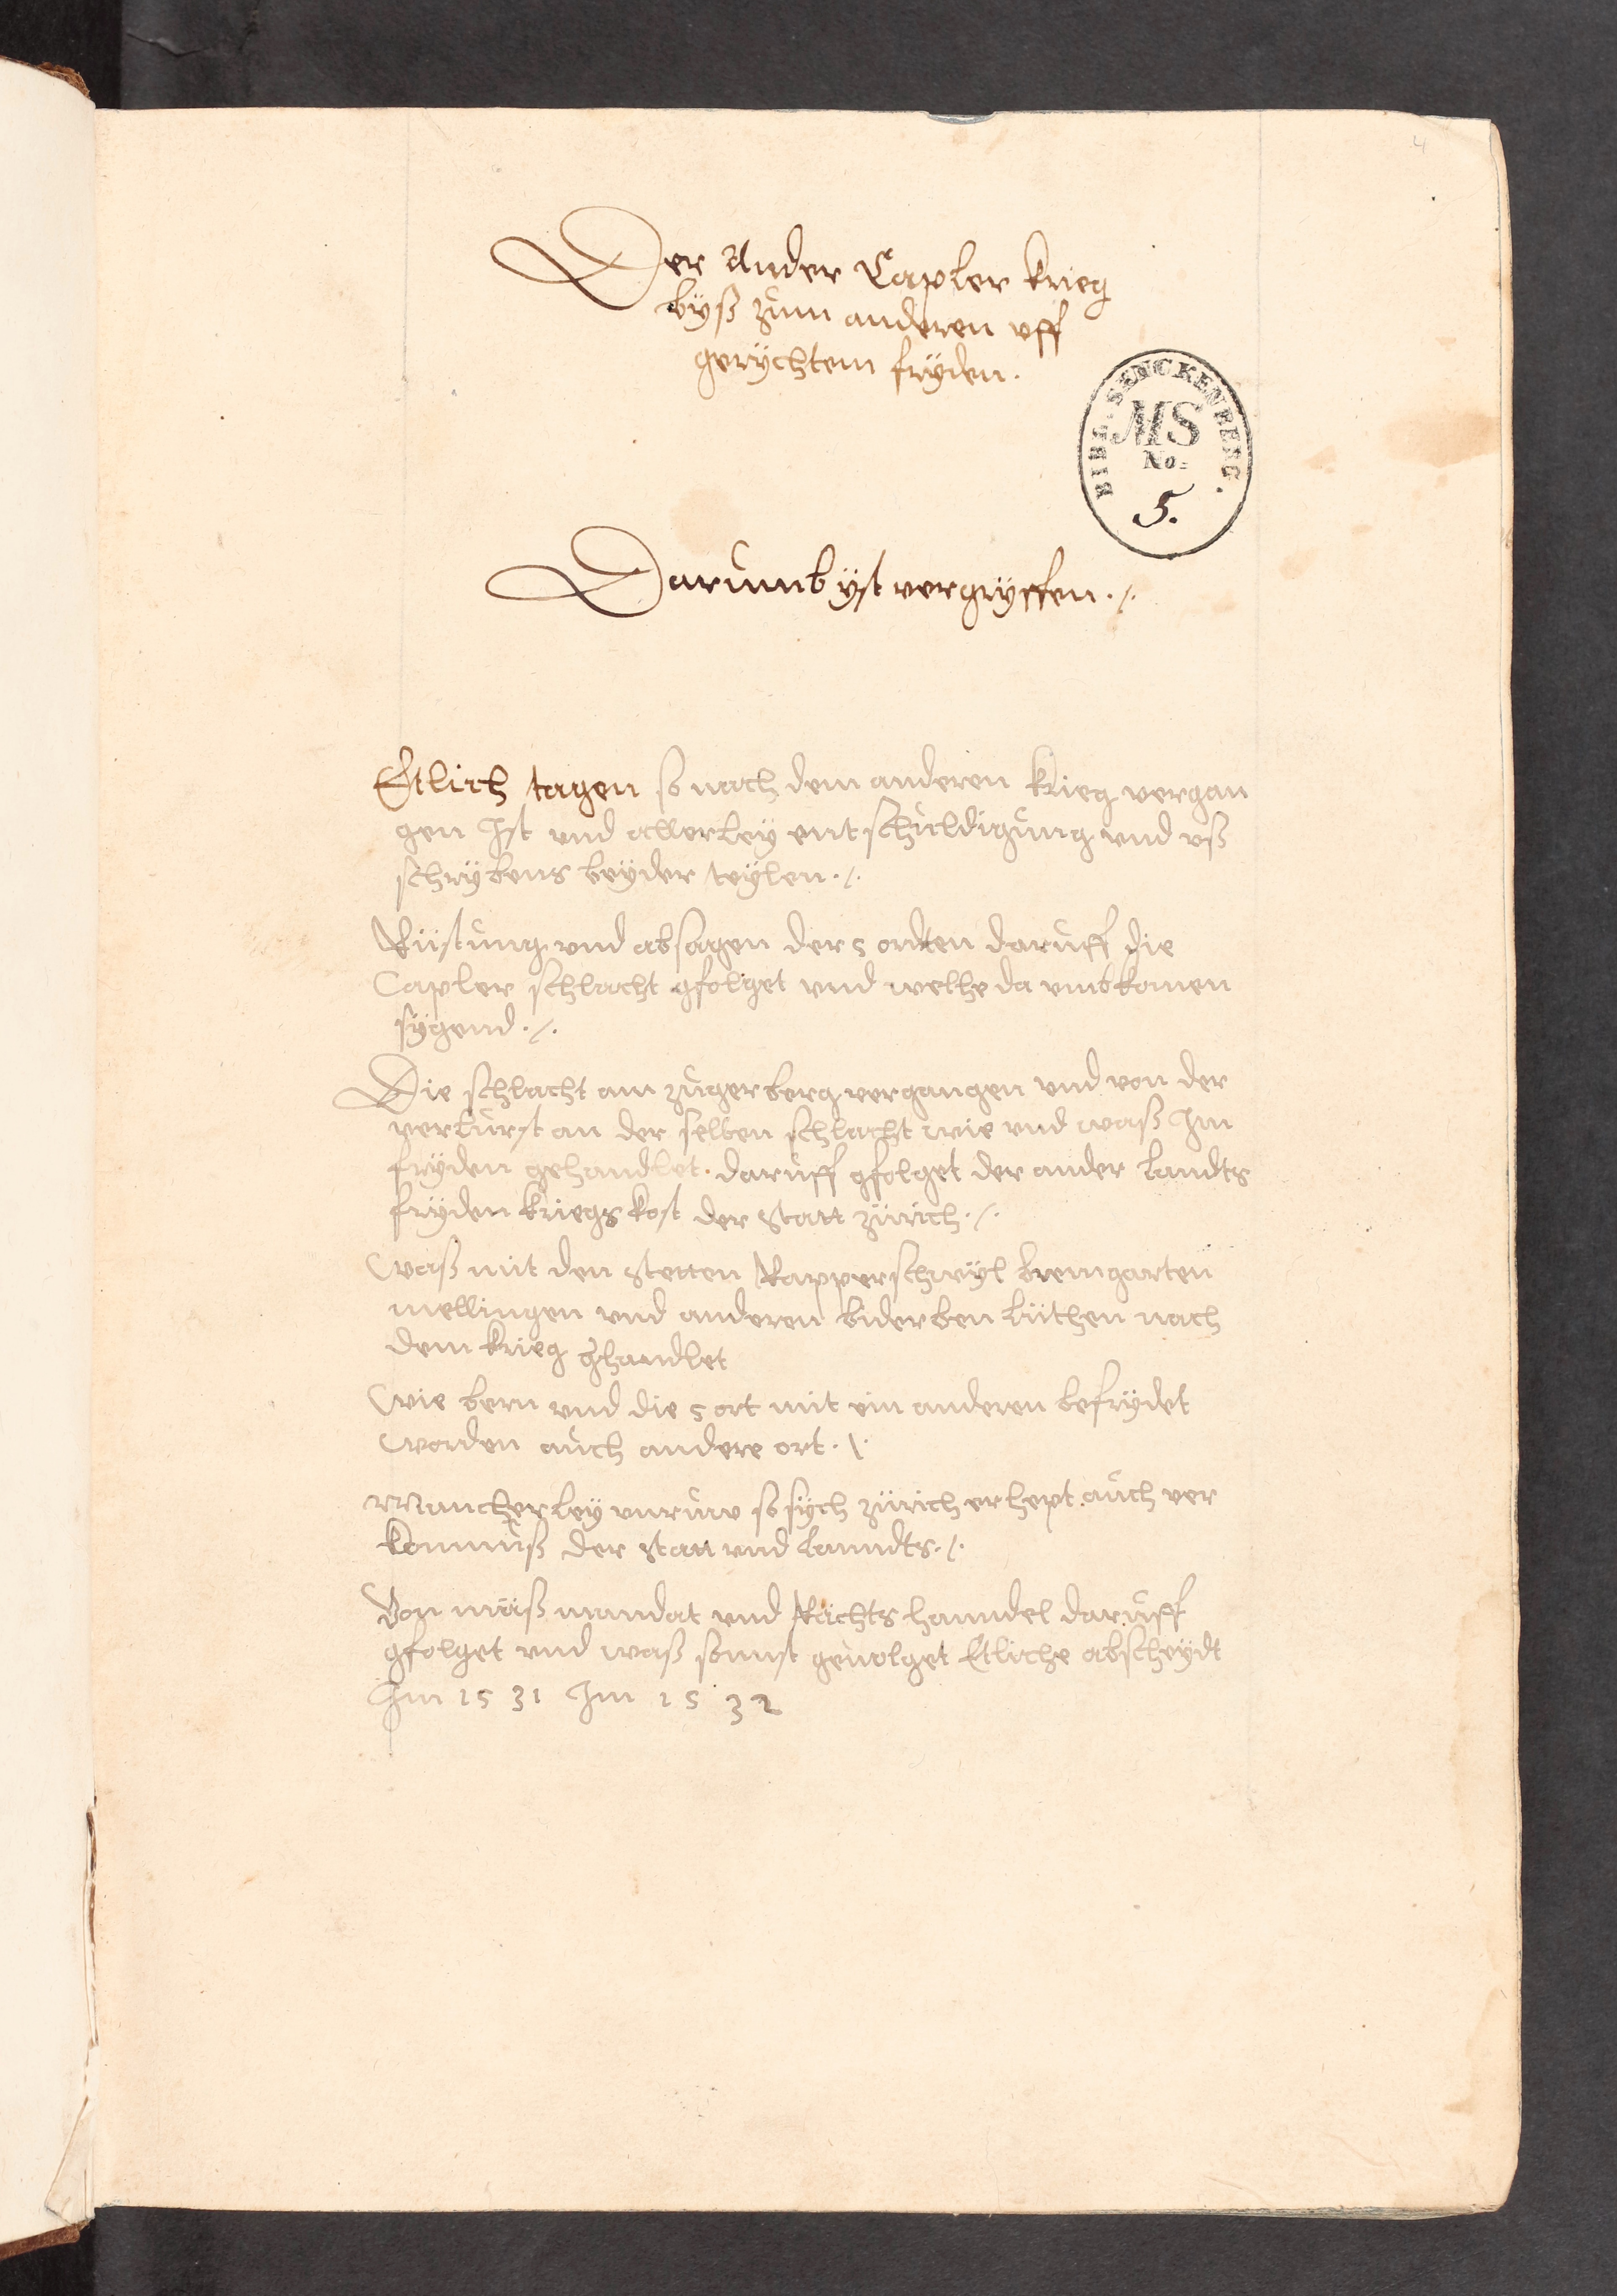 4
Der Ander Capler krieg
byß zum anderen uff
gerÿchtem frÿden.
BIBL. SENCKENBERG.
MS
No:
5.
Darumb ÿst vergrÿffen ./.
Etlich tagen so nach dem anderen krieg vergan
gen Ist und allerleÿ entschuldigung und uß
schrÿbens beÿder teÿlen ./.
Rüstung und absagen der 5 ordten daruff die
Capler schlacht gfolget und welche da umbkomen
sÿgend ./.
Die schlacht am zugerberg vergangen und von der
verlurst an der selben schlacht wie und waß Im
frÿden gehandlet. daruff gfolget der ander landts
frÿden kriegs kost der Statt zürich ./.
Waß mit den Stetten Rapperschwÿl bremgarten
mellingen und anderen biderben lüthen nach
dem krieg ghandlet
Wie bern und die 5 ort mit ein anderen befrÿdet
worden auch andere ort ./.
Mancherleÿ unruw so sÿch zürich erhept auch ver
komnuß der Statt und lanndts ./.
Von mäß mandat und Rächts hanndel daruff
gfolget und waß sunst gevolget Etliche abscheÿdt
Im 1531 Im 1532